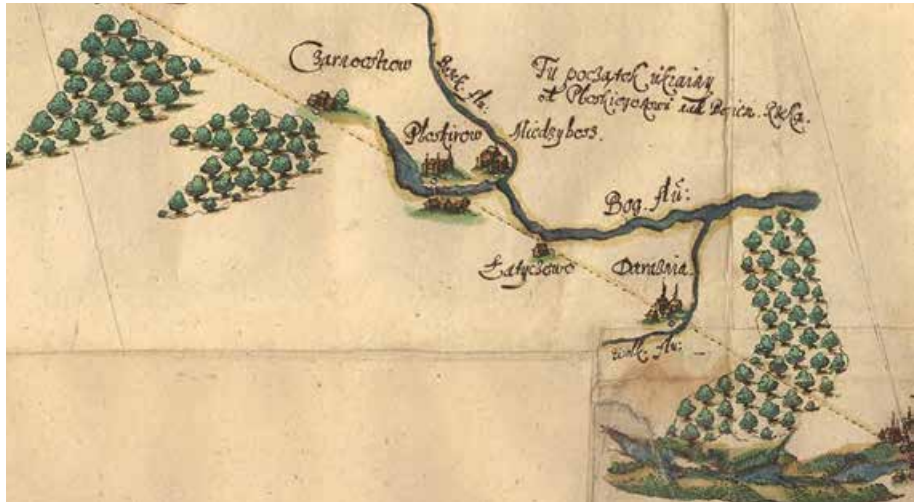 Czarnostrow
Bożek. flu:
Tu początek ukrainy
od Płoskirowa nad Rzeka.
Płoskirow
Miedzyboz.
Bog. flu:
Łatyczowo
Daraznia
wolk. flu: